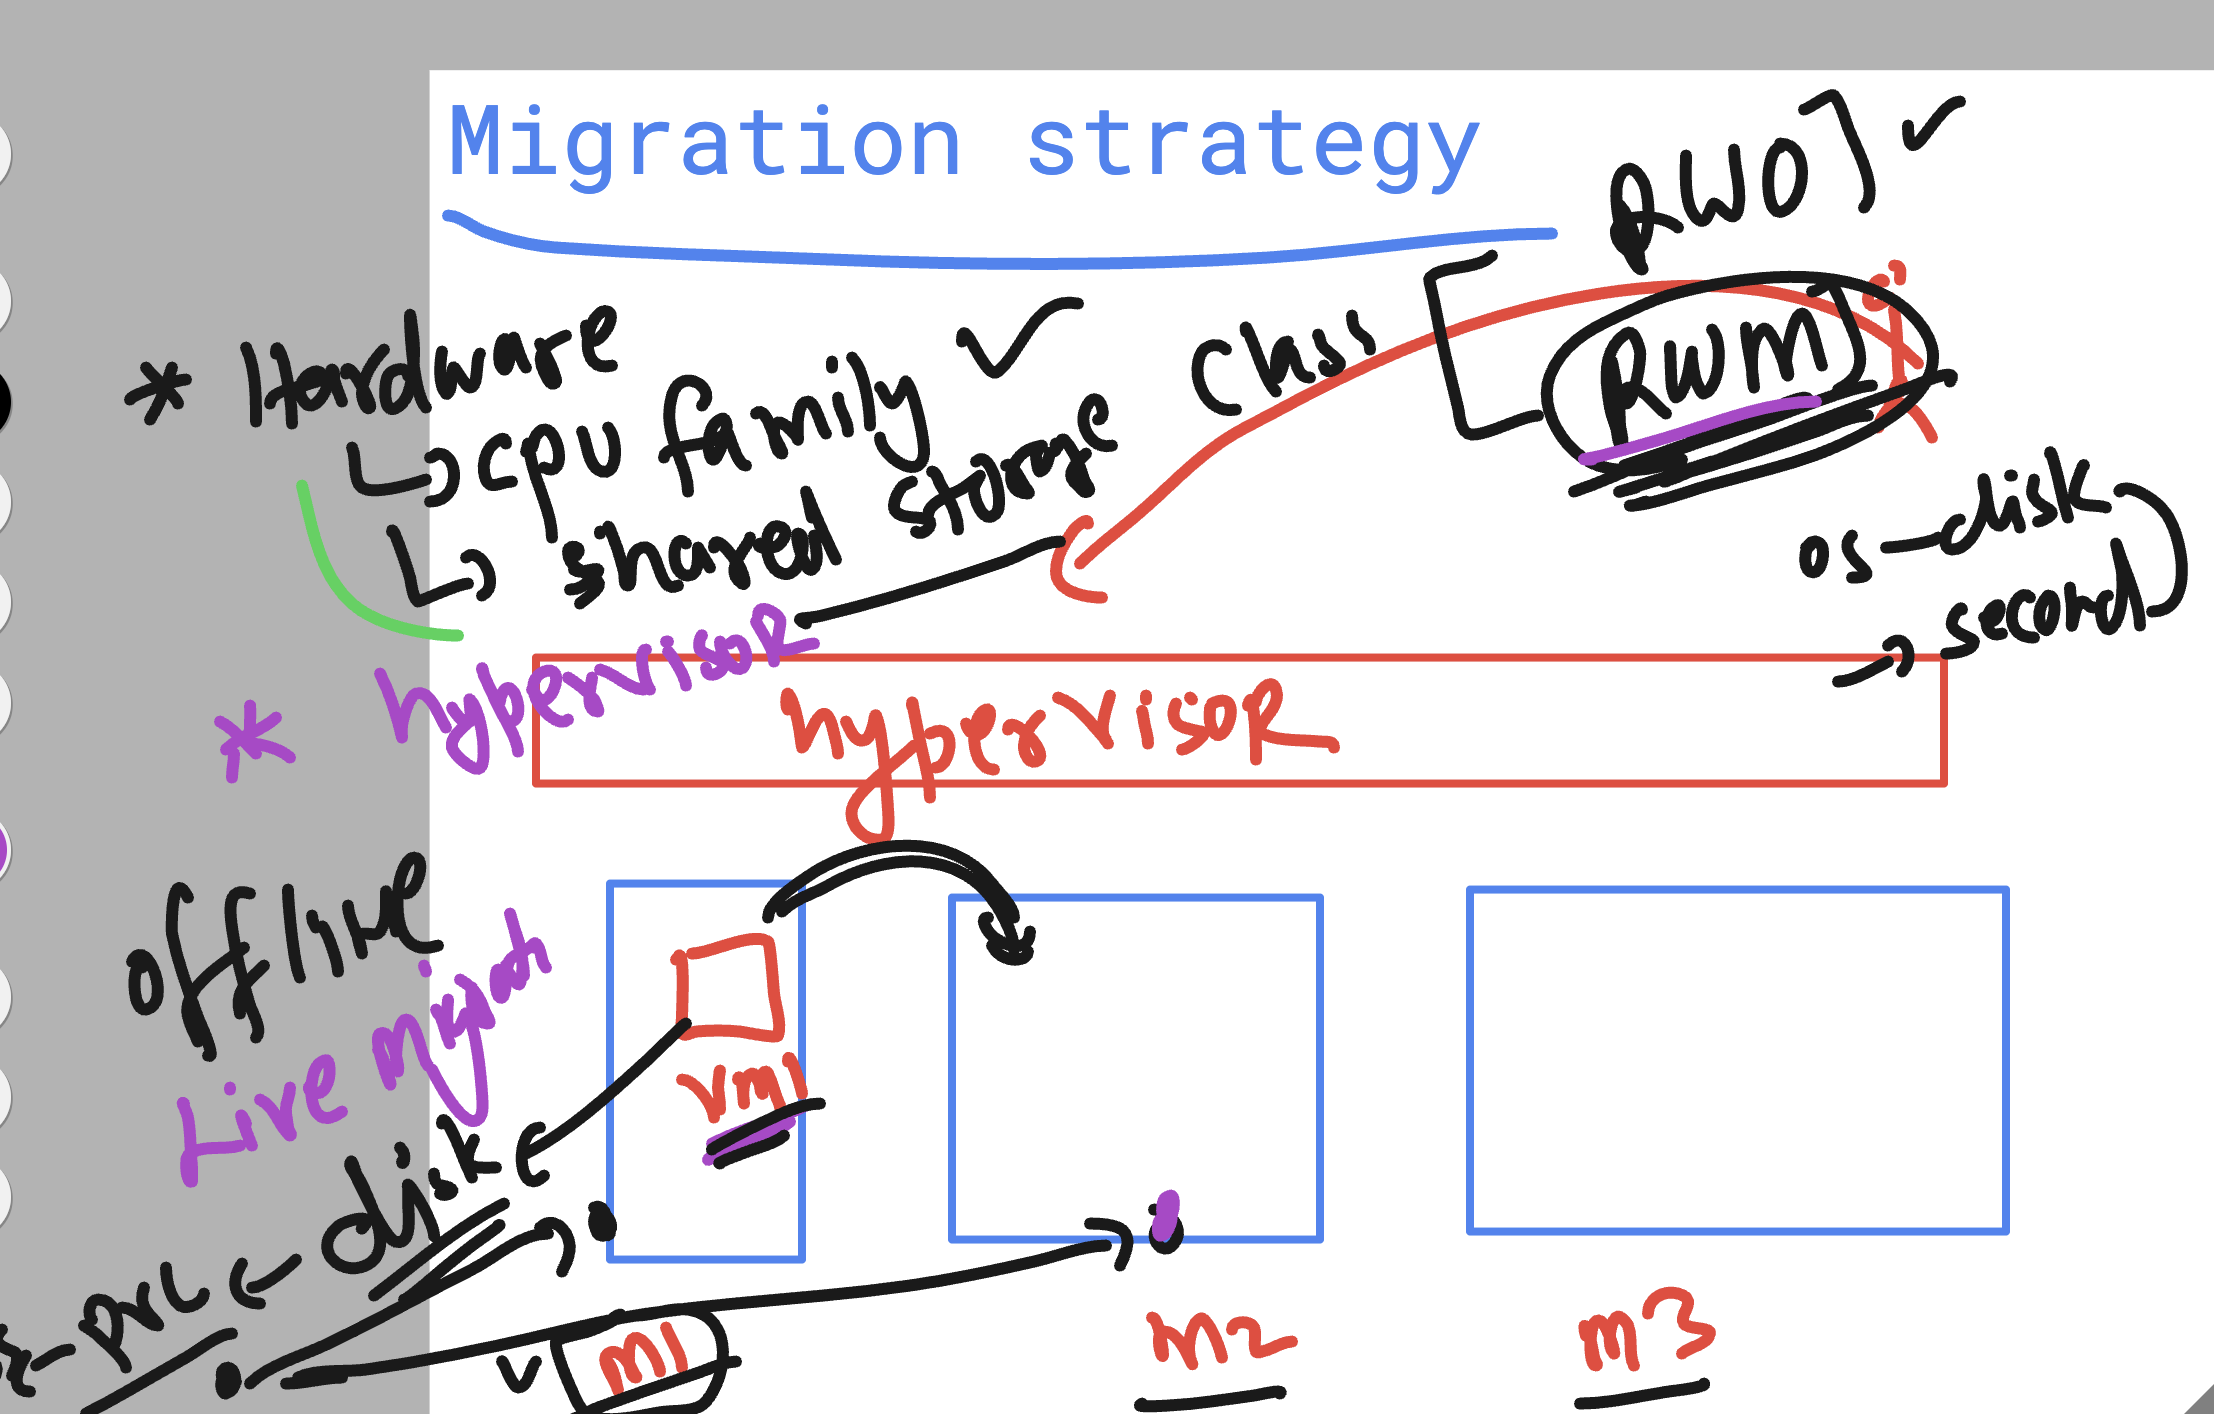 Migration strategy
RWO
* Hardware
RWM
cpu family
class
shared storage
os-disk
second
* hypervisor
hypervisor
offline
Live migrat
vm1
disk
pvc
m1
m2
m3